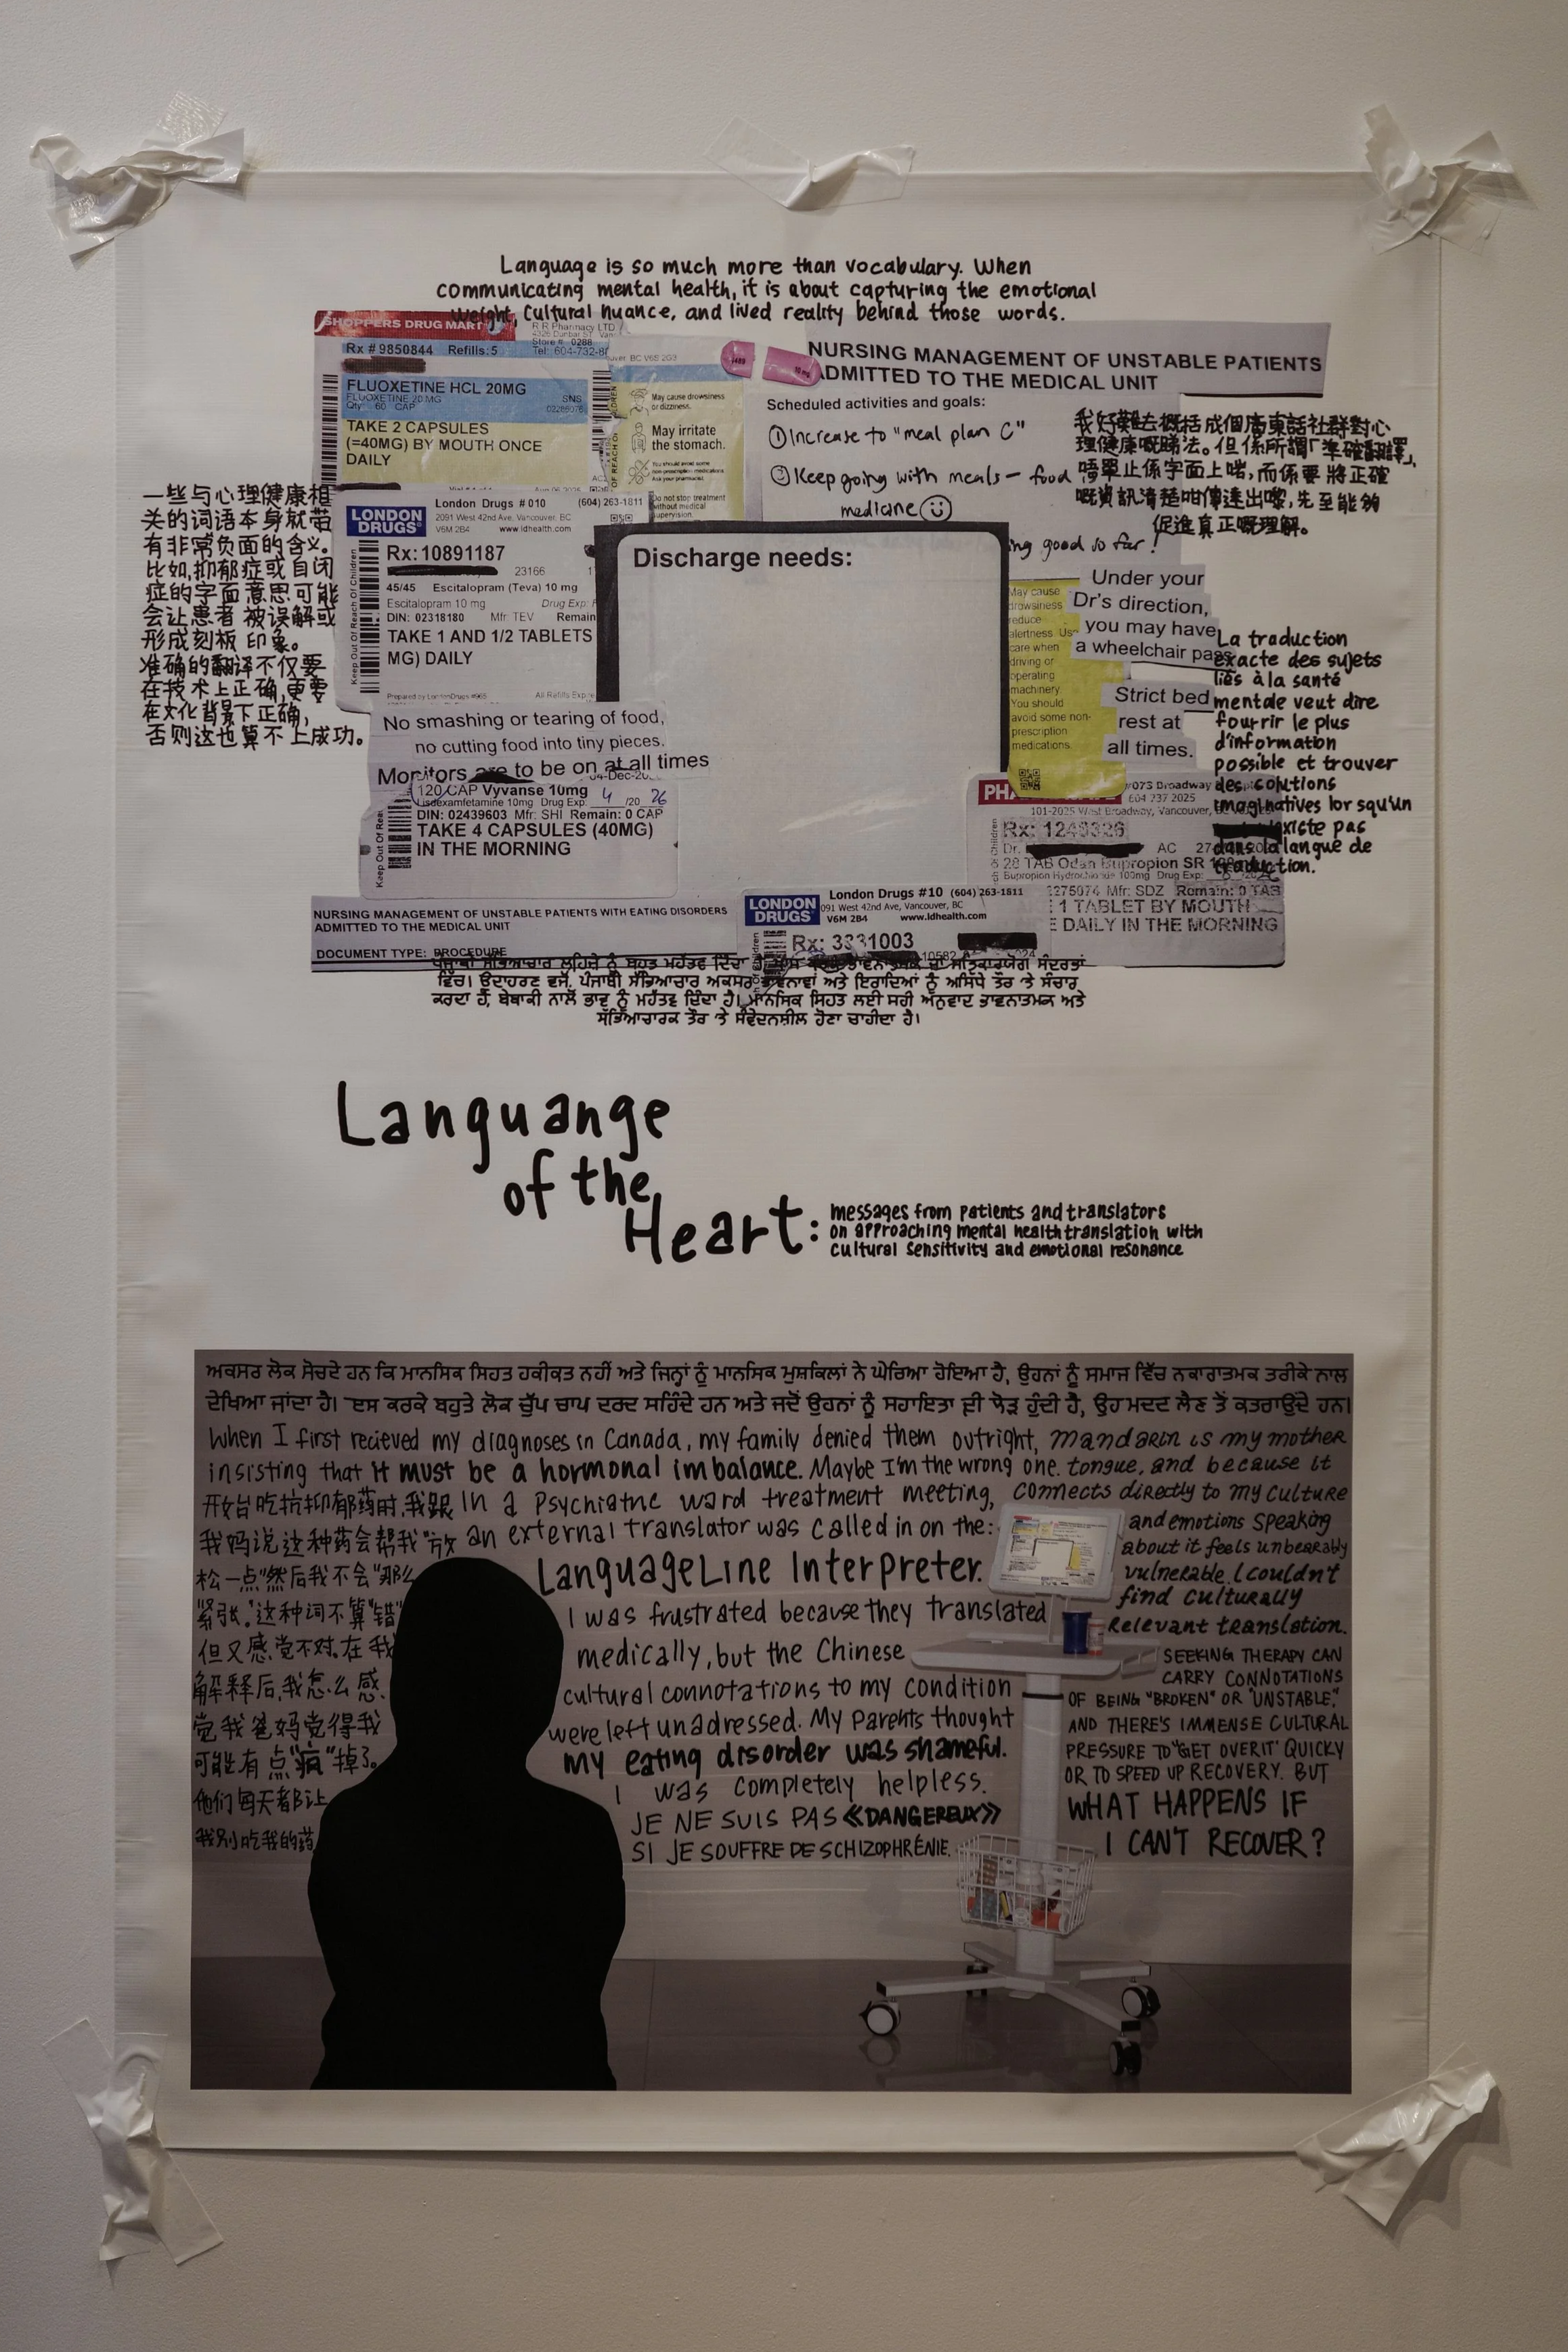 Language is so much more than vocabulary. When
communicating mental health, it is about capturing the emotional
weight, cultural nuance, and lived reality behind those words.
SHOPPERS DRUG MART
R R Pharmacy LTD
4326 Dunbar ST Van
Store # 0288
Tel: 604-732-8
Rx # 9850844 Refills: 5
FLUOXETINE HCL 20MG
FLUOXETINE 20 MG SNS
Qty 60 CAP
TAKE 2 CAPSULES
(=40MG) BY MOUTH ONCE
DAILY
BC V6S 2G3
May cause drowsiness
or dizziness.
May irritate
the stomach.
You should avoid some
non-prescription medications.
Ask your pharmacist.
Do not stop treatment
without medical
supervision.
NURSING MANAGEMENT OF UNSTABLE PATIENTS
ADMITTED TO THE MEDICAL UNIT
Scheduled activities and goals:
① Increase to "meal plan C"
② Keep going with meals — food
medicine
ing good so far!
我好難去概括成個廣東話社群對心
理健康嘅睇法。但係所謂「準確翻譯」,
唔單止係字面上啱,而係要將正確
嘅資訊清楚咁傳達出嚟,先至能夠
促進真正嘅理解。
一些与心理健康相
关的词语本身就带
有非常负面的含义。
比如,抑郁症或自闭
症的字面意思可能
会让患者被误解或
形成刻板印象。
准确的翻译不仅要
在技术上正确,更要
在文化背景下正确,
否则这也算不上成功。
LONDON
DRUGS
London Drugs #010 (604) 263-1811
2091 West 42nd Ave, Vancouver, BC
V6M 2B4 www.ldhealth.com
Rx: 10891187
23166
45/45 Escitalopram (Teva) 10 mg
Escitalopram 10 mg Drug Exp:
DIN: 02318180 Mfr: TEV Remain
TAKE 1 AND 1/2 TABLETS
MG) DAILY
Prepared by LondonDrugs #965 All Refills Expire
Keep Out Of Reach Of Children
Discharge needs:
May cause
drowsiness
reduce
alertness Use
care when
driving or
operating
machinery.
You should
avoid some non-
prescription
medications.
Under your
Dr's direction,
you may have
a wheelchair pass
Strict bed
rest at
all times.
La traduction
exacte des sujets
liés à la santé
mentale veut dire
fourrir le plus
d'information
possible et trouver
des solutions
imaginatives lorsqu'un
existe pas
dans la langue de
traduction.
No smashing or tearing of food,
no cutting food into tiny pieces.
Monitors are to be on at all times
04-Dec-20
120 CAP Vyvanse 10mg
Lisdexamfetamine 10mg Drug Exp: 4 /20 26
DIN: 02439603 Mfr: SHI Remain: 0 CAP
TAKE 4 CAPSULES (40MG)
IN THE MORNING
Keep Out Of Rea
073 Broadway
604 737 2025
101-2025 West Broadway, Vancouver,
Rx: 1249326
Dr. AC
28 TAB Odan Bupropion SR
Bupropion Hydrochloride 100mg Drug Exp:
Mfr: SDZ Remain: 0 TAB
1 TABLET BY MOUTH
DAILY IN THE MORNING
NURSING MANAGEMENT OF UNSTABLE PATIENTS WITH EATING DISORDERS
ADMITTED TO THE MEDICAL UNIT
DOCUMENT TYPE: PROCEDURE
LONDON
DRUGS
London Drugs #10 (604) 263-1811
091 West 42nd Ave, Vancouver, BC
V6M 2B4 www.ldhealth.com
Rx: 3331003
ਪੰਜਾਬੀ ਸੱਭਿਆਚਾਰ ਲਹਿਜੇ ਨੂੰ ਬਹੁਤ ਮਹੱਤਵ ਦਿੰਦਾ ਹੈ ਸਤਿਕਾਰਯੋਗ ਸੰਦਰਭਾਂ
ਵਿੱਚ। ਉਦਾਹਰਣ ਵਜੋਂ, ਪੰਜਾਬੀ ਸੱਭਿਆਚਾਰ ਅਕਸਰ ਭਾਵਨਾਵਾਂ ਅਤੇ ਇਰਾਦਿਆਂ ਨੂੰ ਅਸਿੱਧੇ ਤੌਰ 'ਤੇ ਸੰਚਾਰ
ਕਰਦਾ ਹੈ, ਬੇਬਾਕੀ ਨਾਲੋਂ ਭਾਵ ਨੂੰ ਮਹੱਤਵ ਦਿੰਦਾ ਹੈ। ਮਾਨਸਿਕ ਸਿਹਤ ਲਈ ਸਹੀ ਅਨੁਵਾਦ ਭਾਵਨਾਤਮਕ ਅਤੇ
ਸੱਭਿਆਚਾਰਕ ਤੌਰ 'ਤੇ ਸੰਵੇਦਨਸ਼ੀਲ ਹੋਣਾ ਚਾਹੀਦਾ ਹੈ।
Languange
of the
Heart:
messages from patients and translators
on approaching mental health translation with
cultural sensitivity and emotional resonance
ਅਕਸਰ ਲੋਕ ਸੋਚਦੇ ਹਨ ਕਿ ਮਾਨਸਿਕ ਸਿਹਤ ਹਕੀਕਤ ਨਹੀਂ ਅਤੇ ਜਿਨ੍ਹਾਂ ਨੂੰ ਮਾਨਸਿਕ ਮੁਸ਼ਕਿਲਾਂ ਨੇ ਘੇਰਿਆ ਹੋਇਆ ਹੈ, ਉਹਨਾਂ ਨੂੰ ਸਮਾਜ ਵਿੱਚ ਨਕਾਰਾਤਮਕ ਤਰੀਕੇ ਨਾਲ
ਦੇਖਿਆ ਜਾਂਦਾ ਹੈ। ਇਸ ਕਰਕੇ ਬਹੁਤੇ ਲੋਕ ਚੁੱਪ ਚਾਪ ਦਰਦ ਸਹਿੰਦੇ ਹਨ ਅਤੇ ਜਦੋਂ ਉਹਨਾਂ ਨੂੰ ਸਹਾਇਤਾ ਦੀ ਲੋੜ ਹੁੰਦੀ ਹੈ, ਉਹ ਮਦਦ ਲੈਣ ਤੋਂ ਕਤਰਾਉਂਦੇ ਹਨ।
When I first recieved my diagnoses in Canada, my family denied them outright,
insisting that it must be a hormonal imbalance. Maybe I'm the wrong one.
Mandarin is my mother
tongue, and because it
connects directly to my culture
and emotions speaking
about it feels unbearably
vulnerable. I couldn't
find culturally
relevant translation.
开始吃抗抑郁药时,我跟
我妈说这种药会帮我"放
松一点"然后我不会"那么
紧张."这种词不算"错"
但又感觉不对。在我
解释后,我怎么感
觉我爸妈觉得我
可能有点"疯"掉了。
他们每天都让
我别吃我的药
In a psychiatric ward treatment meeting,
an external translator was called in on the:
LanguageLine Interpreter.
I was frustrated because they translated
medically, but the Chinese
cultural connotations to my condition
were left unadressed. My parents thought
my eating disorder was shameful.
I was completely helpless.
JE NE SUIS PAS «DANGEREUX»
SI JE SOUFFRE DE SCHIZOPHRÉNIE.
SEEKING THERAPY CAN
CARRY CONNOTATIONS
OF BEING "BROKEN" OR "UNSTABLE,"
AND THERE'S IMMENSE CULTURAL
PRESSURE TO "GET OVER IT" QUICKY
OR TO SPEED UP RECOVERY. BUT
WHAT HAPPENS IF
I CAN'T RECOVER?